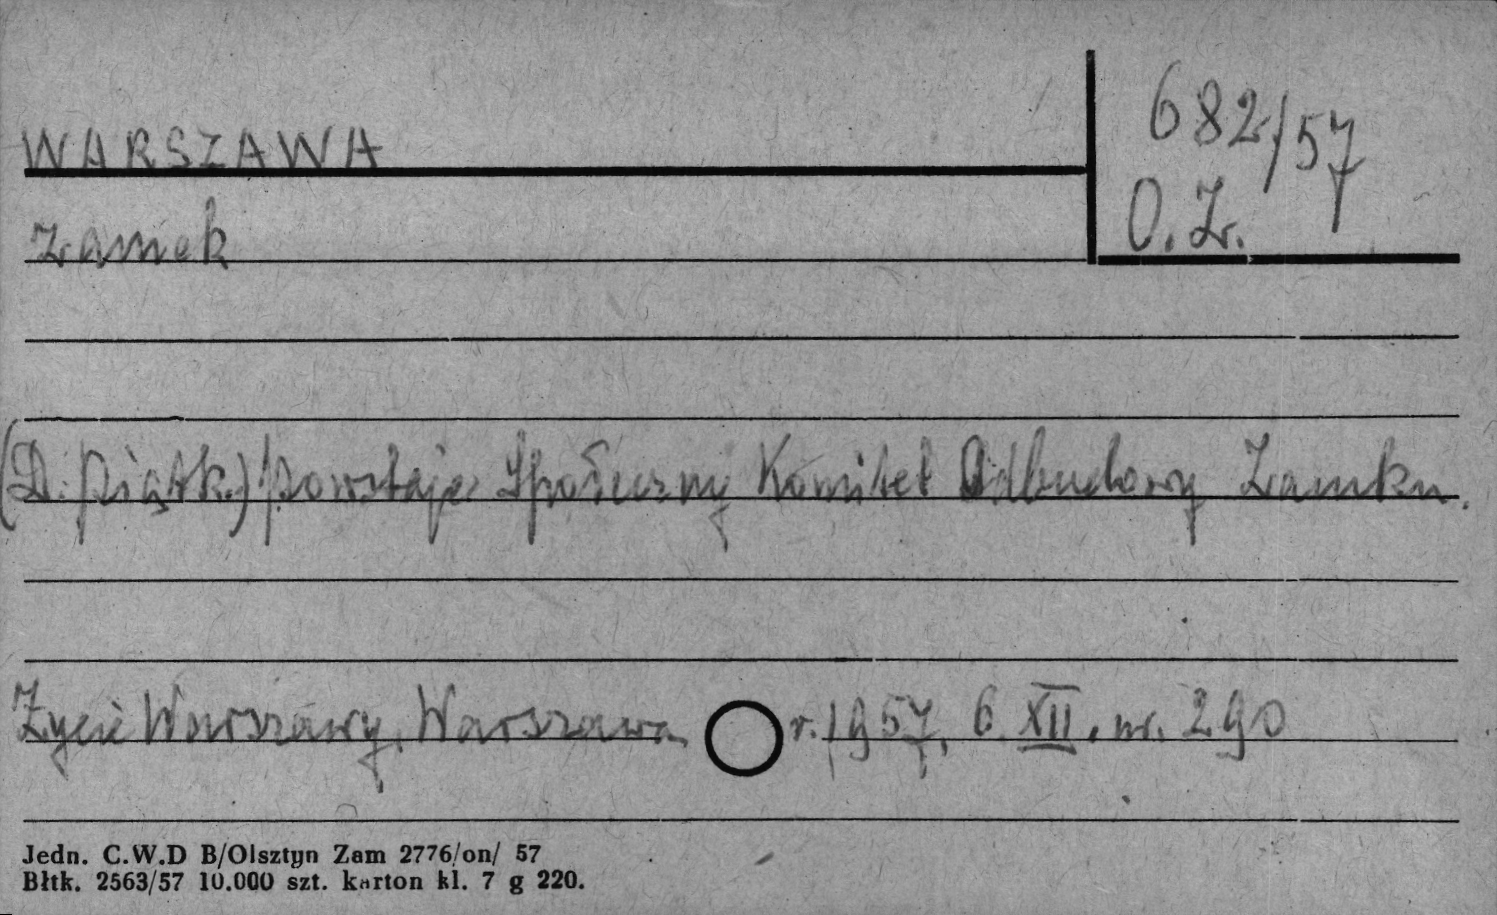 WARSZAWA
682/57
O.Z.
Zamek
(D. Piątk.) Powstaje Społeczny Komitet Odbudowy Zamku.
Życie Warszawy, Warszawa r. 1957, 6 XII, nr. 290
Jedn. C.W.D B/Olsztyn Zam 2776/on/ 57
Błtk. 2563/57 10.000 szt. karton kl. 7 g 220.